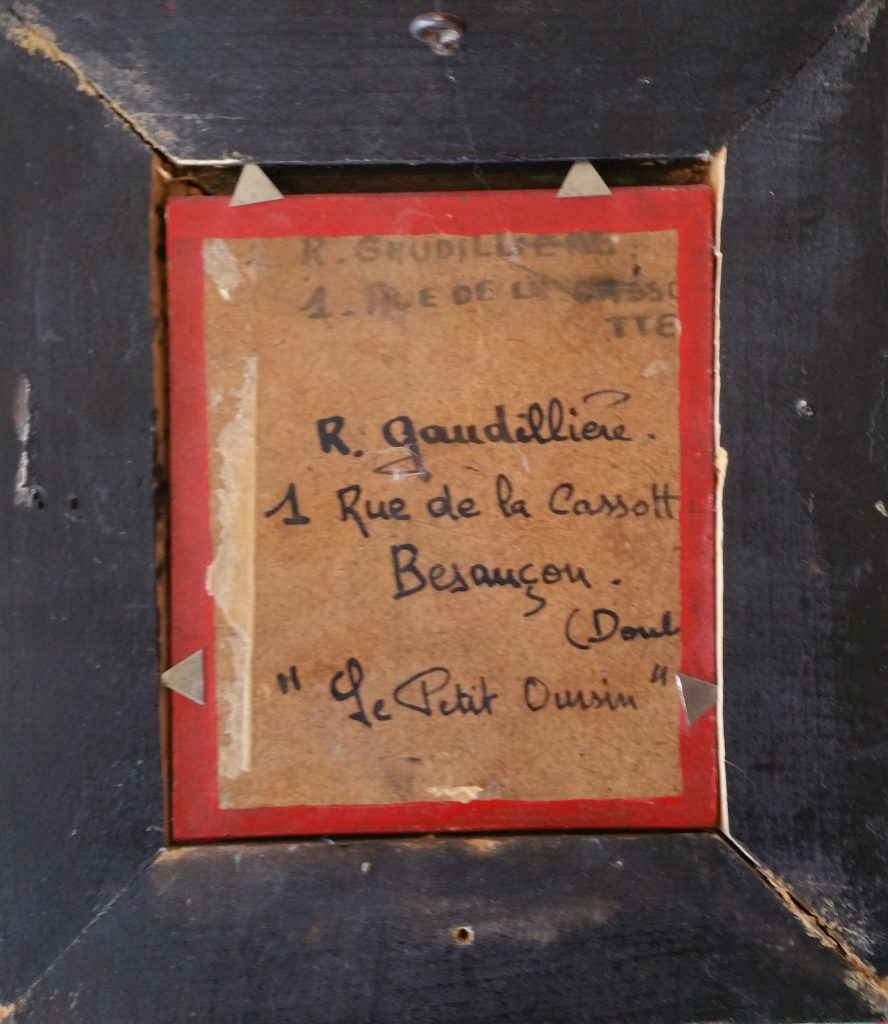 R. GAUDILLIERE
1. RUE DE LA CASSO
TTE
R. Gaudillière.
1 Rue de la Cassott
Besançon.
(Doub
" Le Petit Oursin "